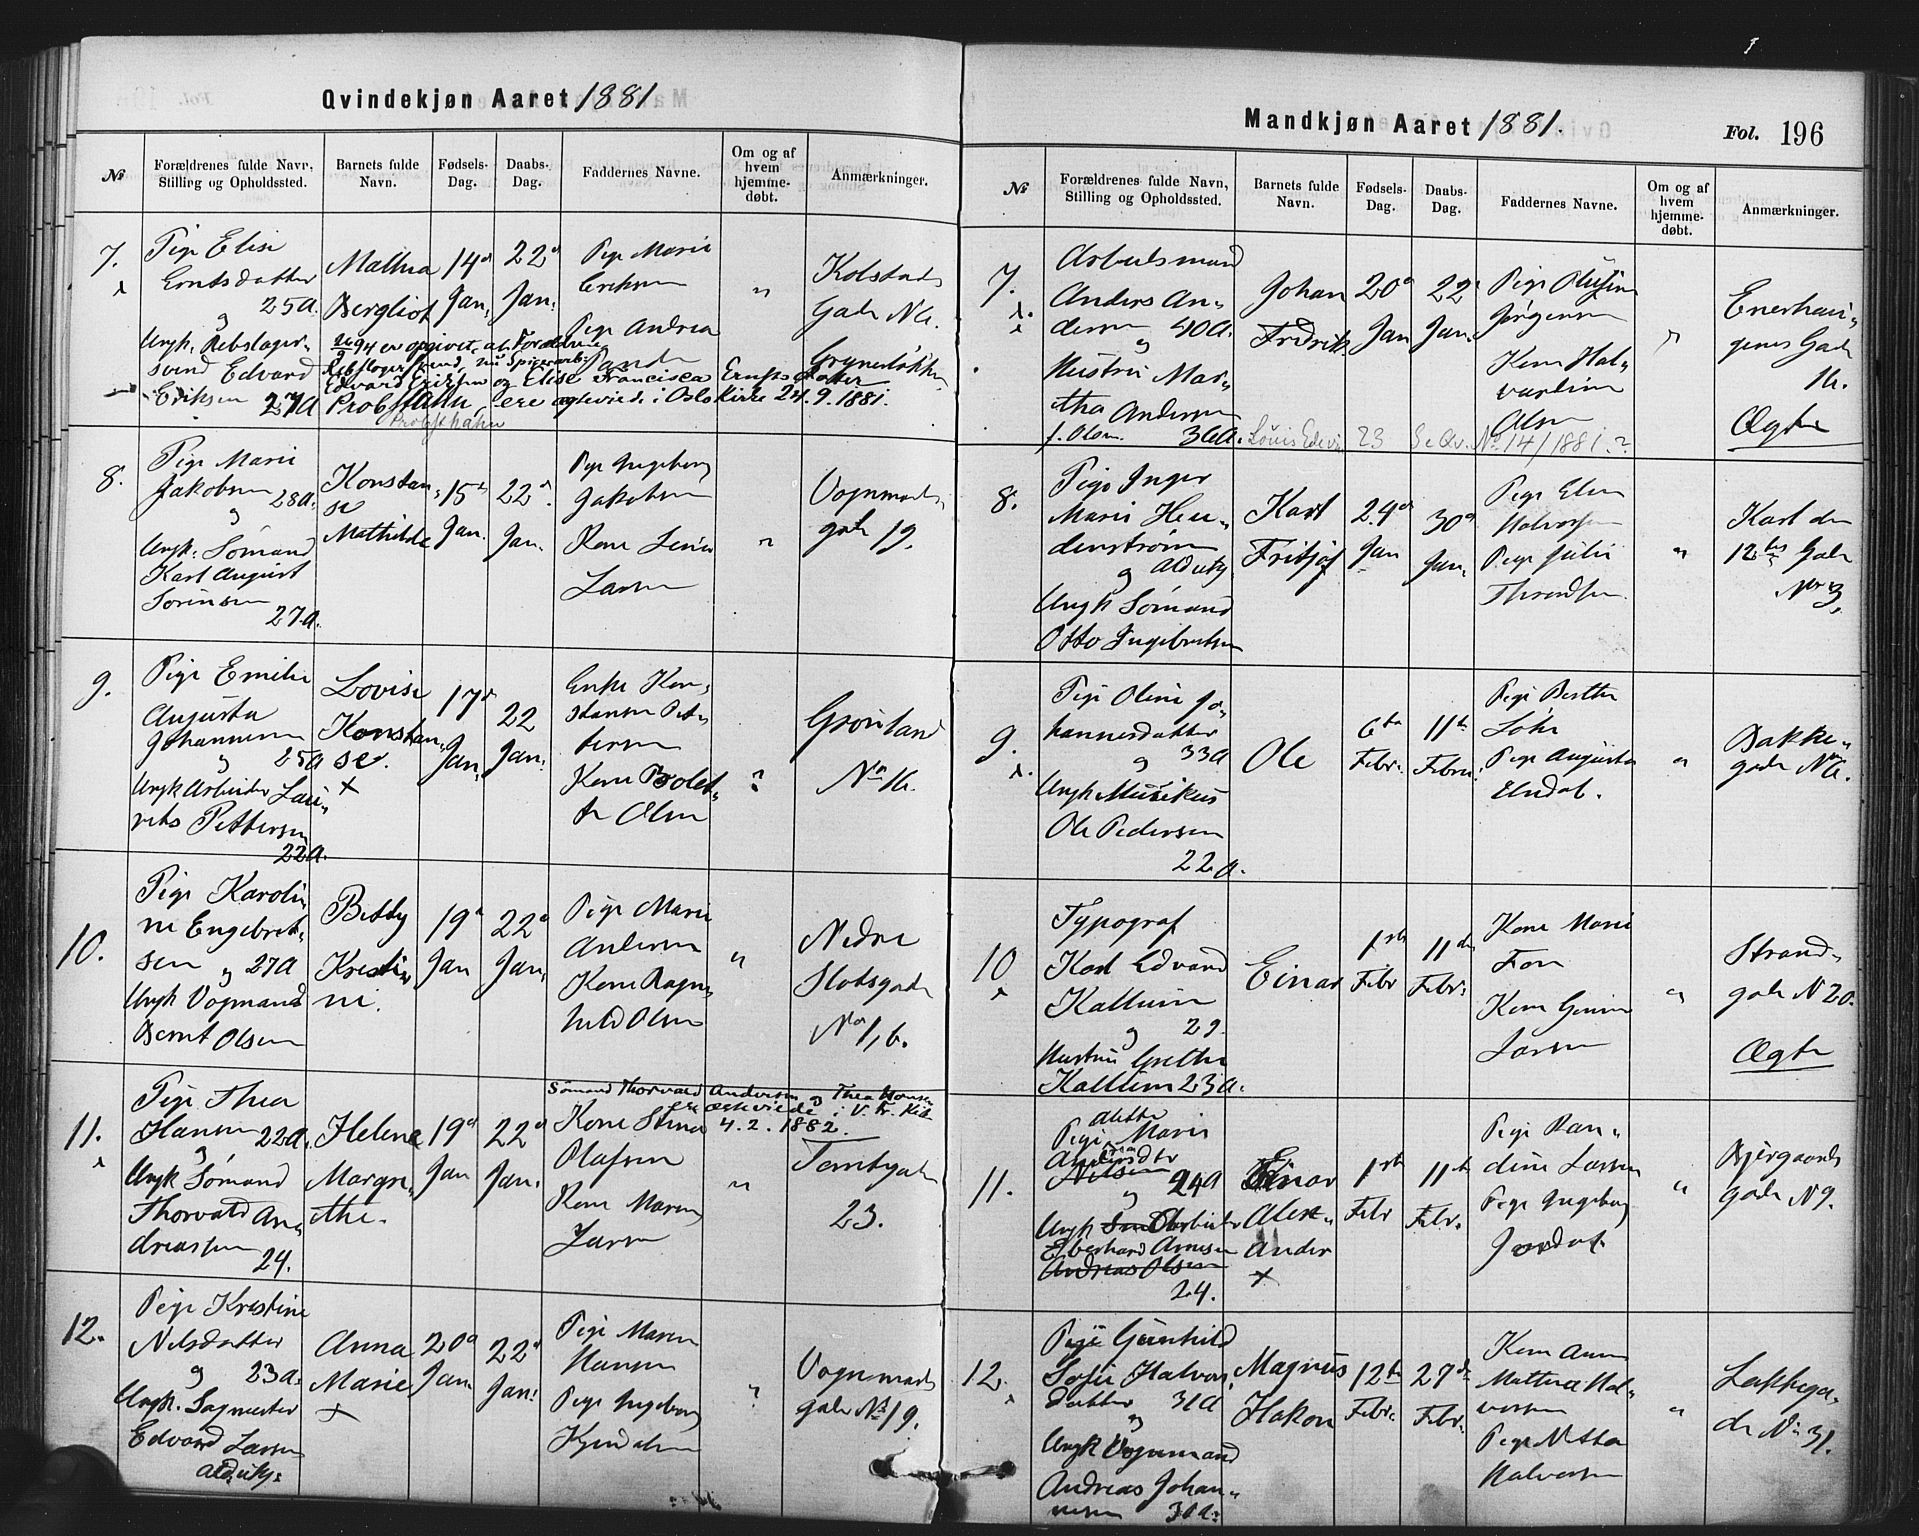 Qvindekjøn Aaret 1881
№
Forældrenes fulde Navn,
Stilling og Opholdssted.
Barnets fulde
Navn.
Fødsels-
Dag.
Daabs-
Dag.
Faddernes Navne.
Om og af
hvem
hjemme-
døbt.
Anmærkninger.
7.
Pige Elise
Erntsdatter
25 A.
og
Ungk. Rebslager-
svend Edvard
Eriksen 27 A
Mathea
Bergliot
14d
Jan.
22d
Jan.
Pige Marie
Eriksen
Pige Andrea
"
Kolstad
Gade
Grynerløkken
er opgivet, at Forældrene
Rebslagersvend, nu Spigerarb.
Edvard Eriksen og Elise Francisca Ernstsdatter
Probsthahn, ere ægteviede i Oslo Kirke 24.9.1881.
Probsthahn
8.
Pige Marie
Jakobsen 28 A.
og
Ungk. Sømand
Karl August
Sørensen
27 A.
Konstan-
se
Mathilde
15d
Jan.
22d
Jan.
Pige Ingeborg
Jakobsen
Kone
Larsen
"
Vognmands
gade 19.
9.
Pige Emilie
Augusta
Johannesen
og 25 A
Ungk Arbeider Lau-
rits Pettersen
22 A.
Lovise
Konstan-
se.
+
17d
Jan.
22
Jan.
Enke Kon-
stanse Pet-
tersen
Kone Bolet-
te Olsen
"
Grønland
No 16.
10.
Pige Karoli-
ne Engebret-
sen og 27 A
Ungk Vogmand
Bernt Olsen
Betty
Kristi-
ne.
19d
Jan
22d
Jan.
Pige Marie
Andersen
Kone Ragn-
hild Olsen
"
Nedre
Slotsgade
No 1, b.
11.
Pige Thea
Hansen 22 A.
og
Ungk Sømand
Thorvald An-
dreassen
24.
Helene
Margre-
the.
19d
Jan
22d
Jan.
Sømand Thorvald Andersen og Thea Hansen
ere ægteviede i V. Fr. Kirke
4.2.1882.
Kone Stina
Olafsen
Kone Maren
Larsen
"
Tomtegade
23.
12.
Pige Kristine
Nilsdatter
og 23 A.
Ungk. Sagmester
Edvard Larsen
Anna
Marie
+
20d
Jan.
22d
Jan.
Pige Maren
Hansen
Pige Ingeborg
"
Vognmands
gade No 19.
Mandkjøn Aaret 1881.
Fol. 196
№
Forældrenes fulde Navn,
Stilling og Opholdssted.
Barnets fulde
Navn.
Fødsels-
Dag.
Daabs-
Dag.
Faddernes Navne.
Om og af
hvem
hjemme-
døbt.
Anmærkninger.
7.
Arbeidsmand
Anders An-
dersen 40 A.
og
Hustru Mar-
tha Andersen
f. Olsen. 36 A.
Johan
Fredrik
20d
Jan
22d
Jan.
Pige Olufine
Jørgensen
Kone Hal-
vardine
Olsen
"
Enerhau-
gens Gade
16.
Ægte
23 Se Qv. No 14/1881.?
8.
Pige Inger
Marie Hen-
denstrøm
og
Ungk Sømand
Otto Ingebretsen
Karl
Fritjof
24d
Jan
30d
Jan.
Pige Elen
Halvorsen
Pige Julie
Throndsen.
"
Karl den
12tes Gade
No 3.
9.
Pige Oline Jo-
hannesdatter
33 A
og
Ungk Musikus
Ole Pedersen
22 A.
Ole
6te
Febr.
11te
Febru.
Pige Berthe
Pige Augusta
"
Bakke-
gade
10
Typograf
Karl Edvard
Kallum
og 29.
Hustru Grethe
Kallum 23 A.
Einar
1ste
Febr
11te
Febr.
Kone Marie
Foss
Kone
Larsen
"
Strand-
gade N 20.
Ægte
11.
Pige Marie
Nilsen
og 24 A
Ungk Arbeider
Eberhard Arnesen
Andreas Olsen
24.
Einar
Alex-
ander
+
1ste
Febr
11te
Febr.
Pige Ran-
dine Larsen
Pige Ingeborg
"
Bjergaards
gade N 9.
12.
Pige Gunhild
Sofie Halvors-
datter 31 A
og
Ungk Vognmand
Andreas Johan-
nesen 31 A.
Magnus
Hakon
12te
Febr.
27de
Febr.
Kone Anne
Mathea Hal-
vorsen
Pige Netta
Halvorsen
"
Lakkega-
de No 31.